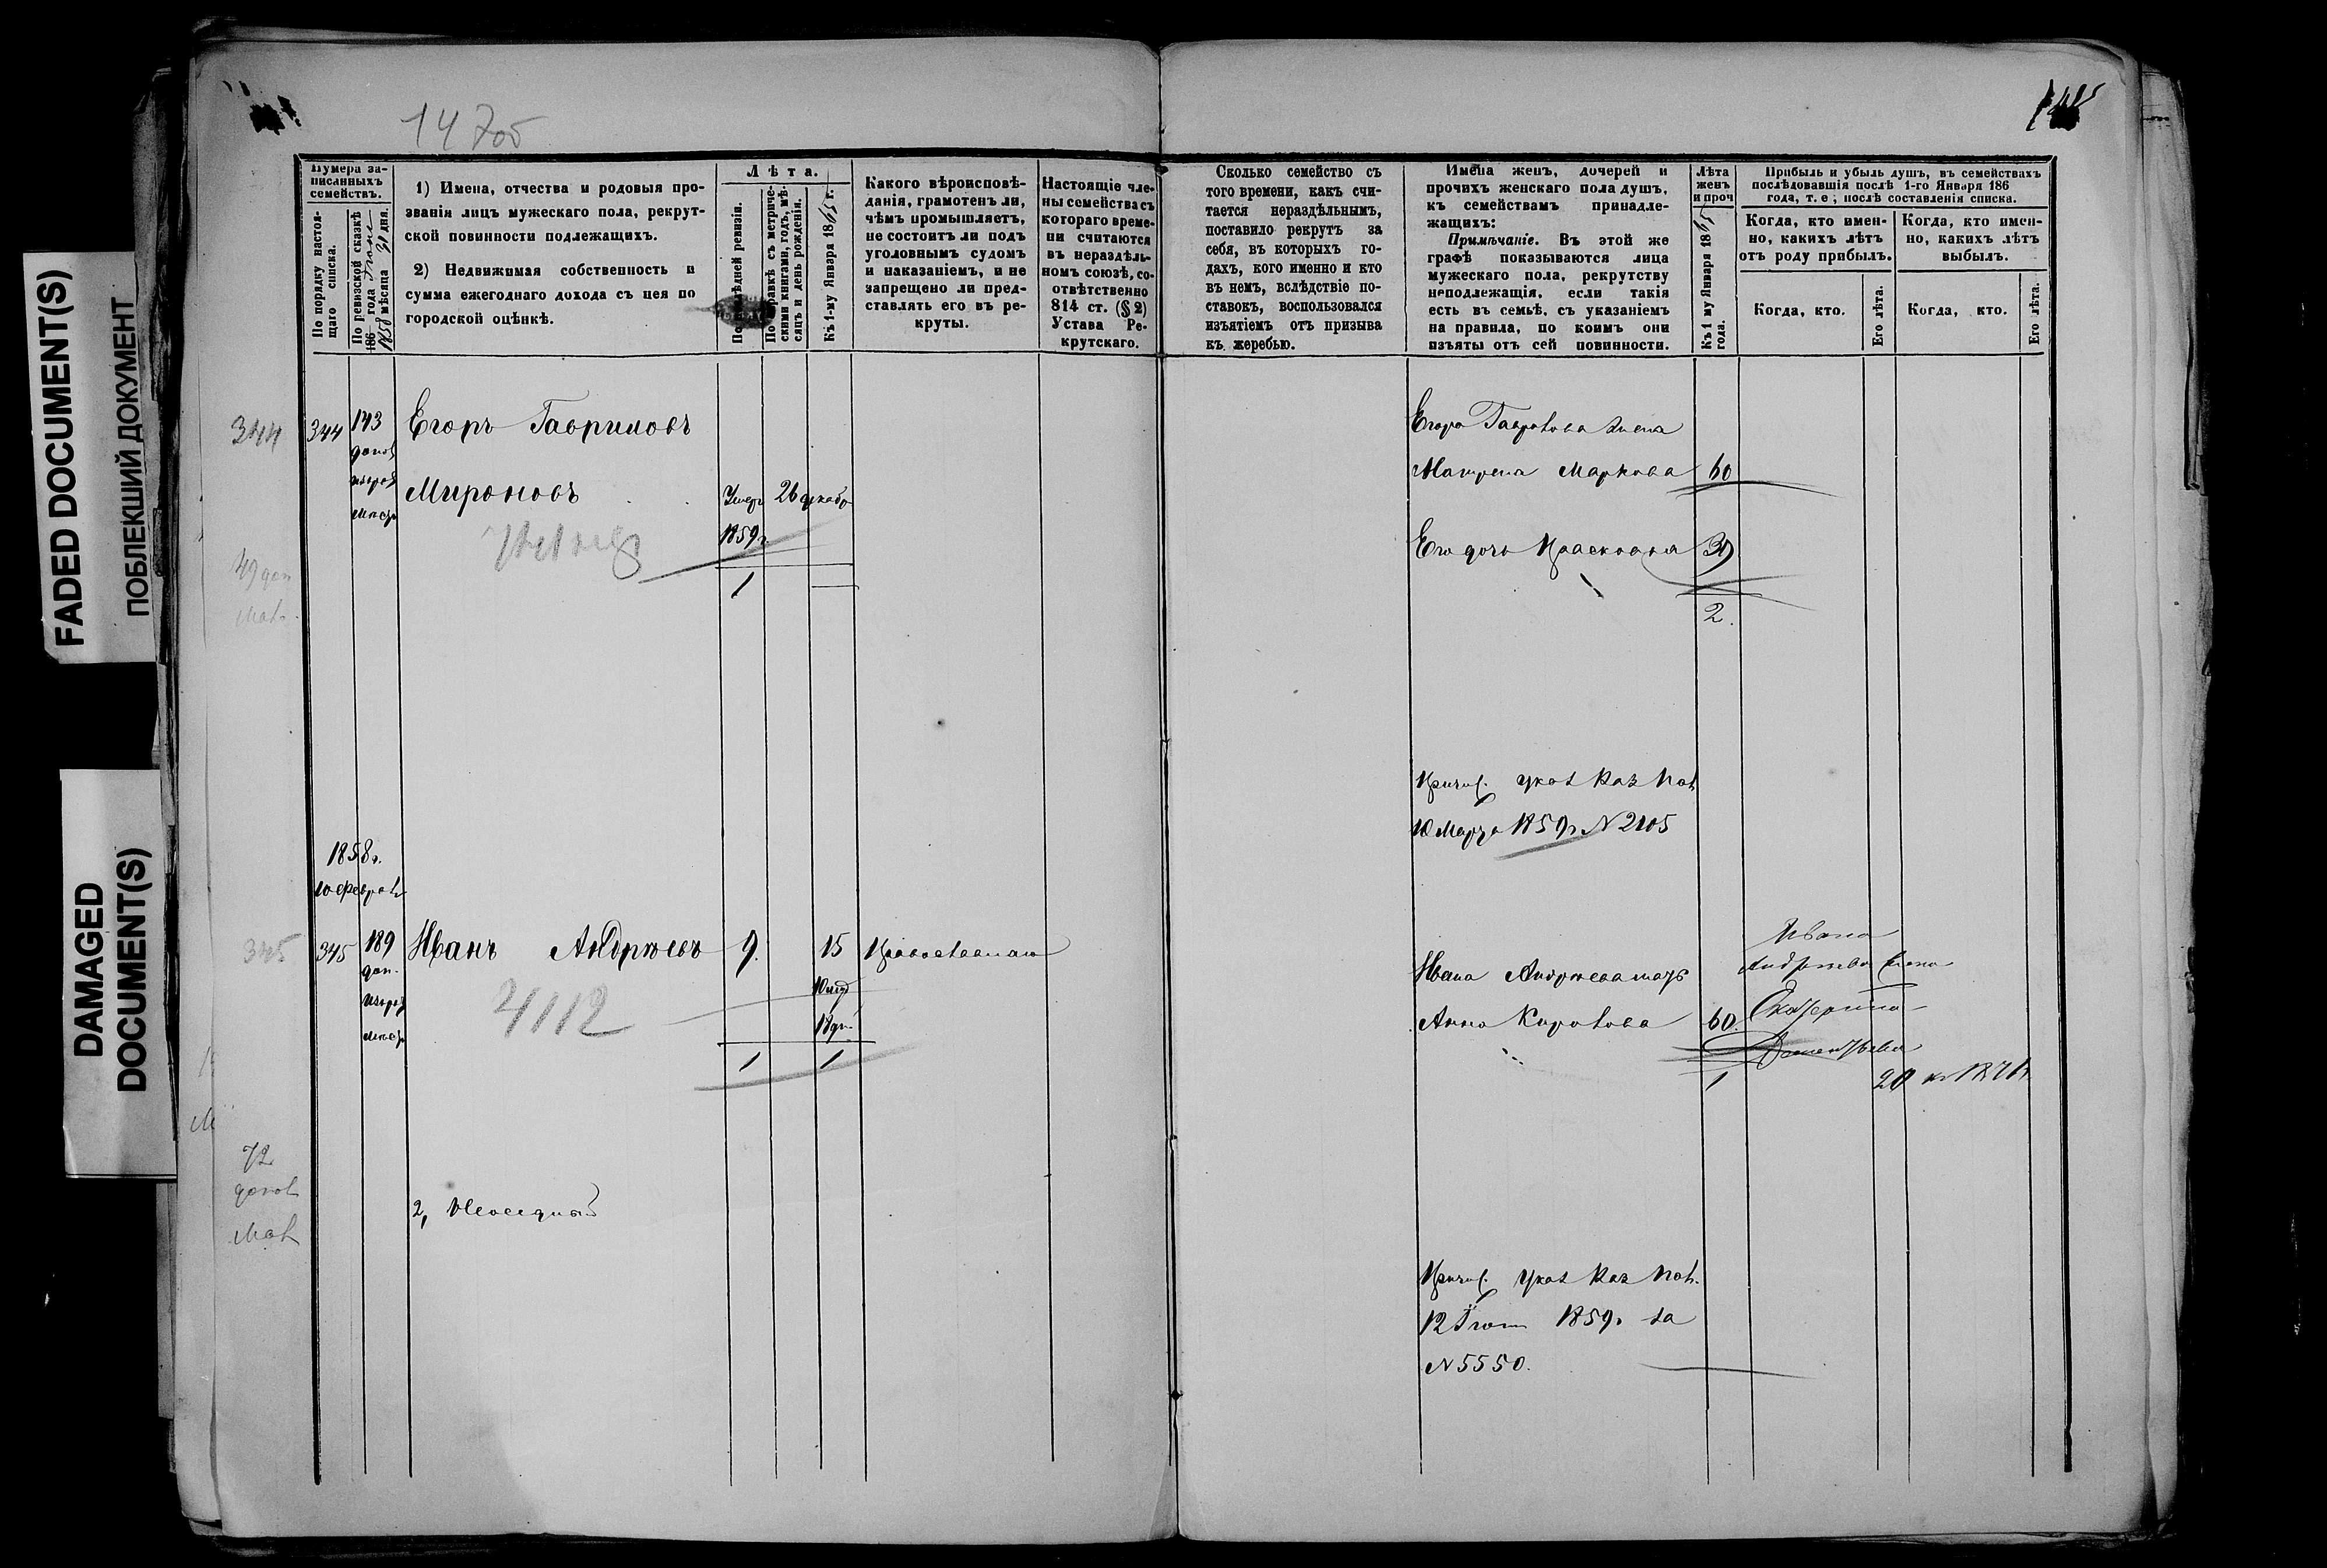 FADED DOCUMENT(S)
ПОБЛЕКШИЙ ДОКУМЕНТ
DAMAGED
DOCUMENT(S)
147об
Нумера за-
писанныхъ
семействъ.
По порядку настоя-
щаго списка.
По ревизской сказкѣ
186 года
1858 мѣсяца дня.
1) Имена, отчества и родовыя про-
званія лицъ мужескаго пола, рекрут-
ской повинности подлежащихъ.
2) Недвижимая собственность и
сумма ежегоднаго дохода съ нея по
городской оцѣнкѣ.
Лѣта.
По послѣдней ревизіи.
По справкѣ съ метриче-
скими книгами, годъ, мѣ-
сяцъ и день рожденія.
Къ 1-му Января 1865 г.
Какого вѣроисповѣ-
данія, грамотенъ ли,
чѣмъ промышляетъ,
не состоитъ ли подъ
уголовнымъ судомъ
и наказаніемъ, и не
запрещено ли пред-
ставлять его въ ре-
круты.
Настоящіе чле-
ны семейства съ
котораго време-
ни считаются
въ нераздѣль-
номъ союзѣ, со-
отвѣтственно
814 ст. (§ 2)
Устава Ре-
крутскаго.
Сколько семейство съ
того времени, какъ счи-
тается нераздѣльнымъ,
поставило рекрутъ за
себя, въ которыхъ го-
дахъ, кого именно и кто
въ немъ, вслѣдствіе по-
ставокъ, воспользовался
изъятіемъ отъ призыва
къ жеребью.
Имена женъ, дочерей и
прочихъ женскаго пола душъ,
къ семействамъ принадле-
жащихъ:
Примѣчаніе. Въ этой же
графѣ показываются лица
мужескаго пола, рекрутству
неподлежащія, если такія
есть въ семьѣ, съ указаніемъ
на правила, по коимъ они
изъяты отъ сей повинности.
Лѣта
женъ
и проч
Къ 1 му Января 1865
года.
Прибыль и убыль душъ, въ семействахъ
послѣдовавшія послѣ 1-го Января 186
года, т. е., послѣ составленія списка.
Когда, кто имен-
но, какихъ лѣтъ
отъ роду прибылъ.
Когда, кто имен-
но, какихъ лѣтъ
выбылъ.
Когда, кто.
Его лѣта.
Когда, кто.
Его лѣта.
344
344 143 Егоръ Гавриловъ
Мироновъ
Умеръ 26 декабр
1859г.
1
49 доп
Егора Гаврилова жена
Матрена Маркова 60
Его дочь Прасковья 39
2.
Причис. указ Каз Пал
10 Марта 1859г. № 2105
1858г.
10 Феврал
345
345 189 Иванъ Андреевъ 9. 15 Православнаго
доп.
10 мѣс
18 дн.
1 1
4112
Ивана Андреева мать
Анна Кирилова 60.
1
Ивана
Андреева жена
Екатерина
Дементьева
20 къ 1871г
72
2, Неосѣдлый
Причис. указ Каз Пал.
12 Іюня 1859г за
№ 5550.